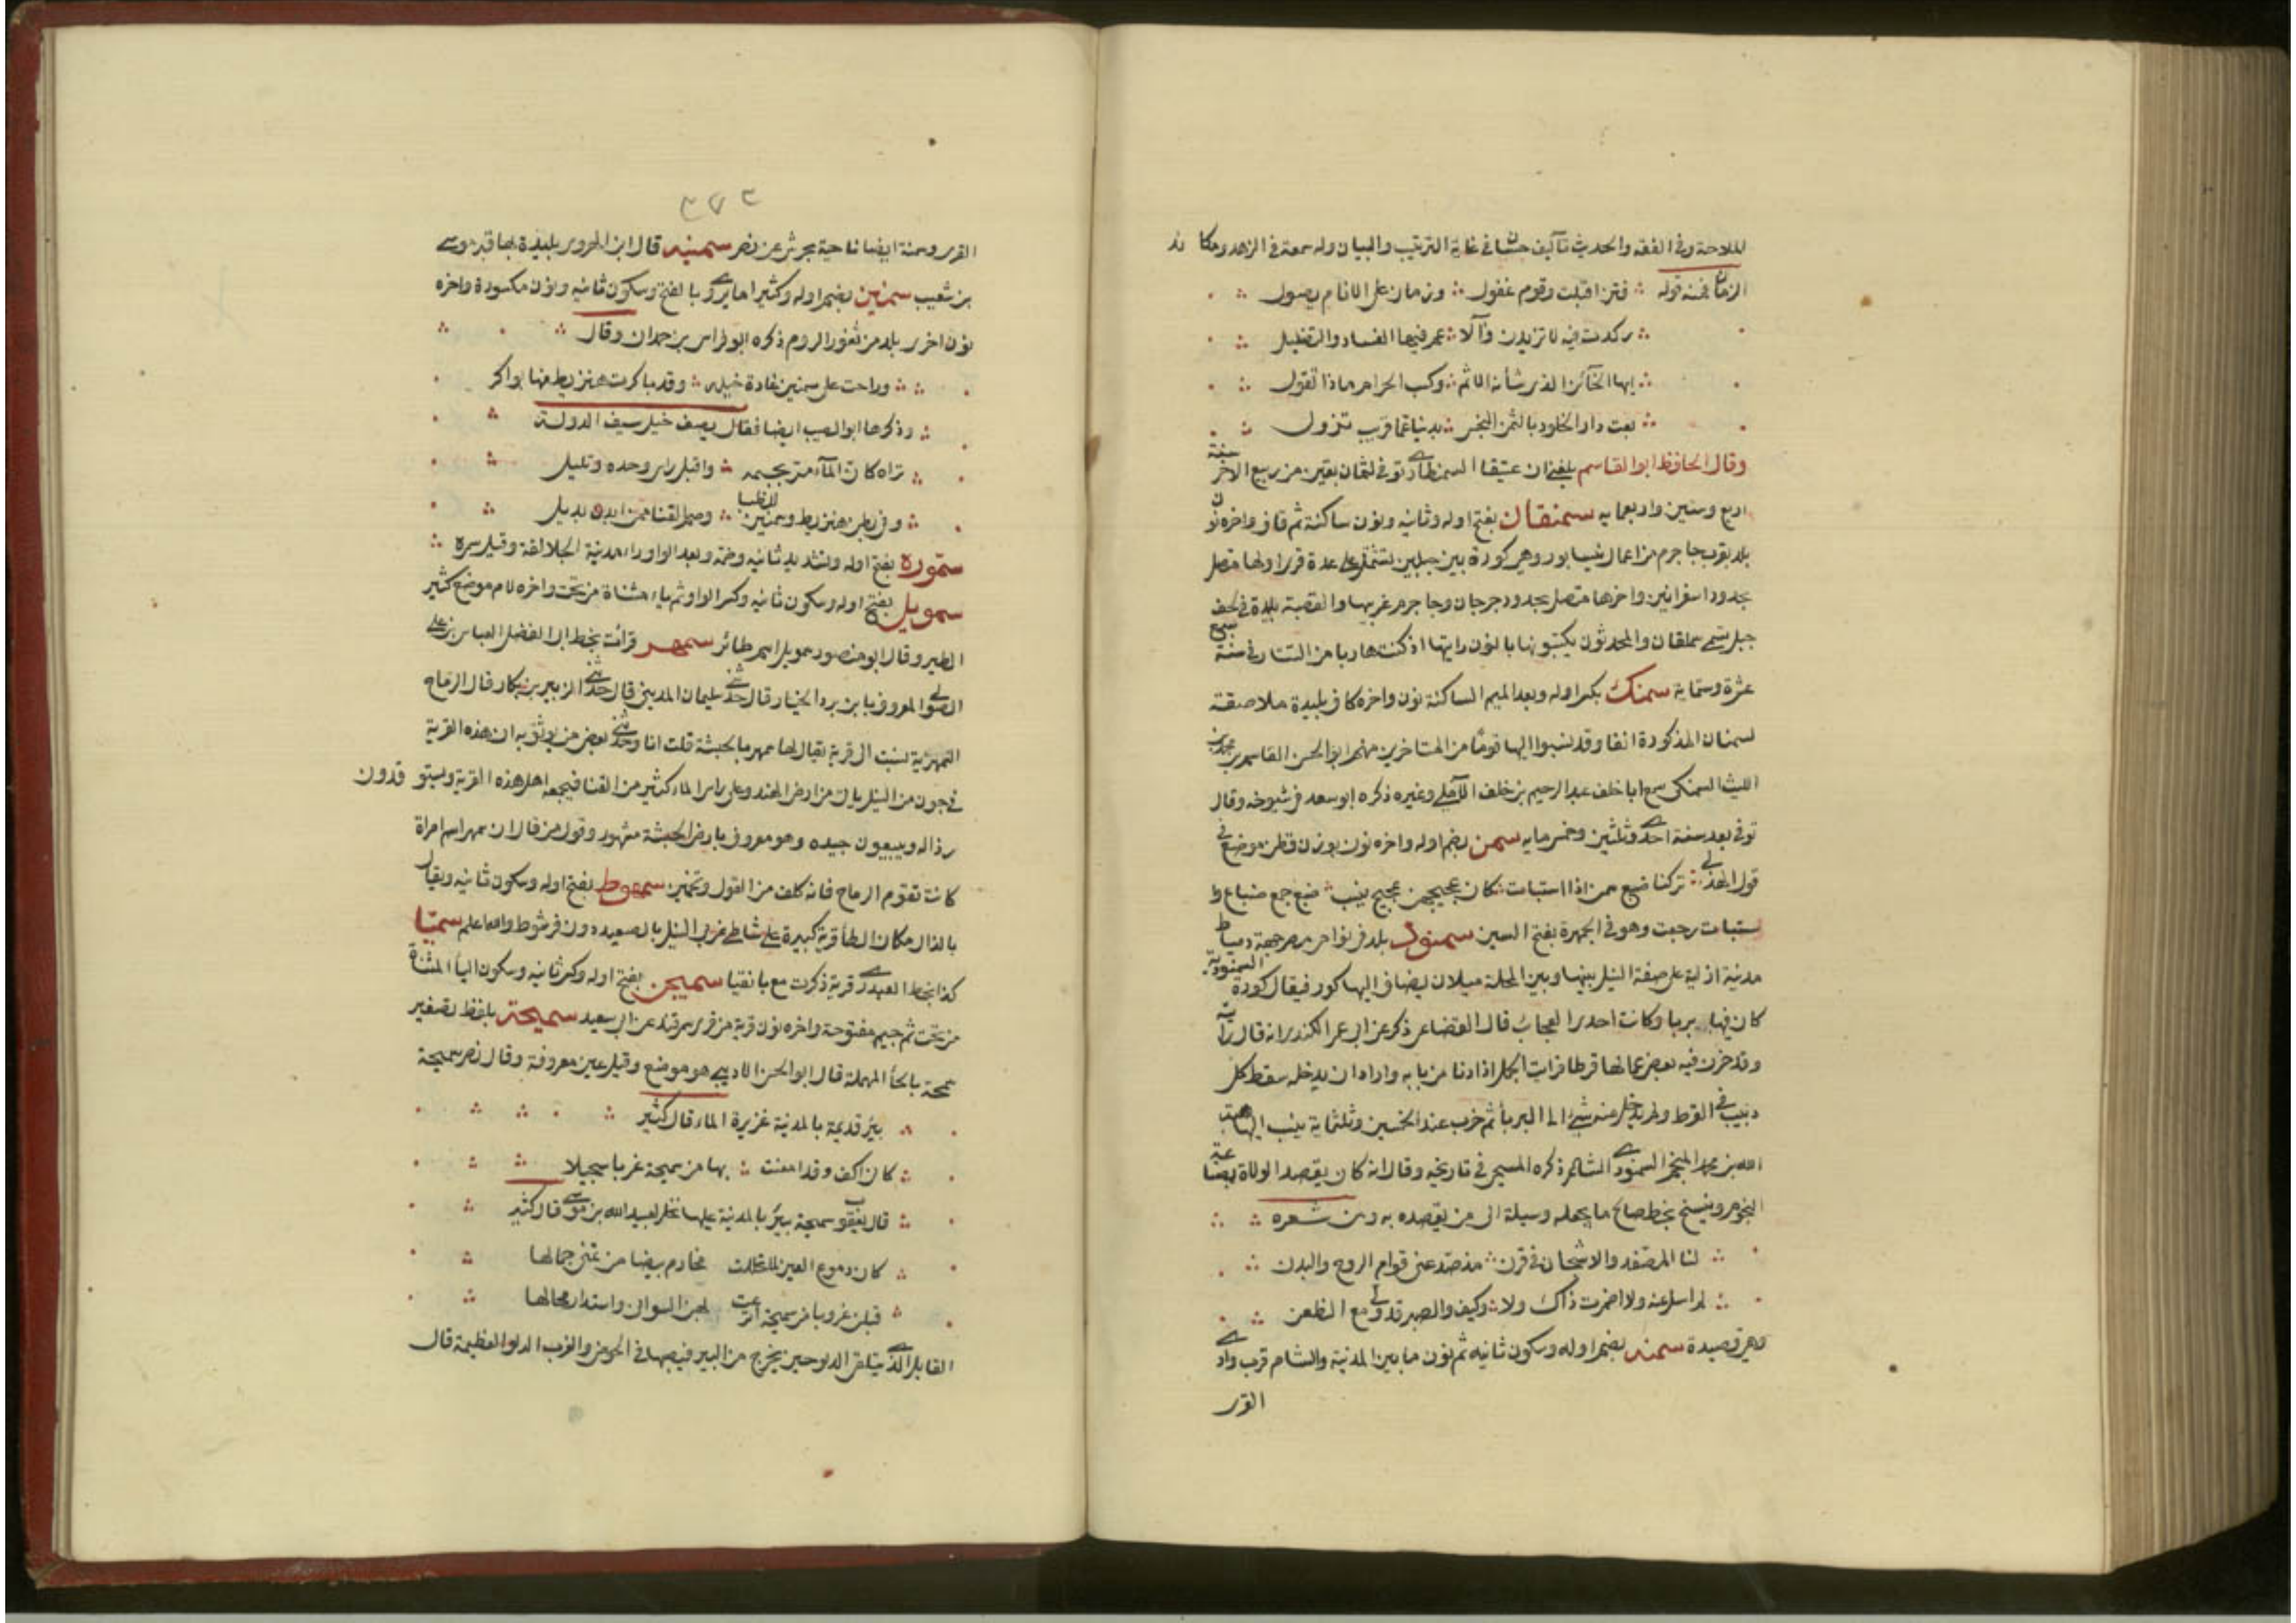 للملاحة وفى الفقه والحديث تآليف حسان فى غاية الترتيب والبيان وله سمعة فى الزهد ومكا ئد
الزمان فمنه قوله فتن اقبلت وقوم غفول وزمان على الانام يصول
ركدت فيه لا تريدن زوالا عم فيها الفساد والتضليل
ايها الخآئن الذى شأنه الاثم وكسب الحرام ماذا تقول
بعت دار الخلود بالثمن البخس بدنيا عما قريب تزول
وقال الحافظ ابو القاسم بلغنى ان عتيقا السمنطارى توفى لثمان بقين من ربيع الاخر سنة
اربع وستين واربعمايه سمنقان بفتح اوله وثانيه ونون ساكنة ثم قاف واخره نون
بلد بقرب جاجرم من اعمال نيسابور وهى كورة بين جبلين تشتمل على عدة قرى اولها متصل
بحدود اسفرائين واخرها متصل بحدود جرجان وجاجرم غربيها والقصبة بليدة فى لحف
جبل تسمى سملقان والمحدثون يكتبونها بالنون رايتها اذ كنت هاربا من التتار فى سنة سبع
عشرة وستماية سمنك بكسر اوله وبعد الميم الساكنة نون واخره كاف بليدة ملاصقة
لسمنان المذكورة انفا وقد نسبوا اليها قومًا من المتاخرين منهم ابو الحسن القاسم بن محمد بن
الليث السمنكى سمع ابا خلف عبد الرحيم بن خلف الآملى وغيره ذكره ابو سعد فى شيوخه وقال
توفى بعد سنة احدى وثلثين وخمسمايه سمن بضم اوله واخره نون بوزن قطن موضع فى
قول الهذلى تركنا ضبع سمن اذا استبات كان عجيجهن عجيج نيب ضبع جمع ضباع وا
ستبات رجعت وهو فى الجمهرة بفتح السين سمنود بلد فى نواحى مصر جهة دمياط
مدينة ازلية على ضفة النيل بينها وبين المحلة ميلان يضاف اليها كورة فيقال كورة السمنودية
كان فيها بربا وكانت احدى العجائب قال القضاعى ذكر عن ابى عمر الكندى انه قال رايته
وقد خزن فيه بعض عمالها قرطا فرايت الجمل اذا دنا من بابه واراد ان يدخله سقط كل
دبيب فى القرط ولم يدخل منه شئ الى البربا ثم خرب عند الخمسين وثلثماية ينسب اليها هبة
الله بن محمد المنجم السمنودى الشاعر ذكره المسبحى فى تاريخه وقال انه كان يقصد الولاة بصناعة
النجوم وينسخ بخط صالح ما يجعله وسيلة الى من يقصده به ومن شعره
لنا المصفد والاشجان فى قرن مذ صد عنى قوام الروح والبدن
لم اسل عنه ولا اضمرت ذاك ولا وكيف والصبر قد ولى مع الظعن
وهى قصيدة سمنه بضم اوله وسكون ثانيه ثم نون ما بين المدينة والشام قرب وادى
القرى
٣٧٣
القرى وسمنة ايضا ناحية بجرش عن نصر سمنيه قال ابن الهروى بليدة بها قبر موسى
بن شعيب سمنين بضم اوله وكثيرا ما يروى بالفتح وسكون ثانيه ونون مكسورة واخره
نون اخرى بلد من ثغور الروم ذكره ابو فراس بن حمدان وقال
وراحت على سمنين غارة خيله وقد باكرت هنزيط منها بواكر
وذكرها ابو الطيب ايضا فقال يصف خيل سيف الدولة
تراه كان المآء مر بجسمه واقبل راس وحده وتليل
وفى بطن هنزيط وسمنين للظبا وصم القنا ممن ابدن بديل
سمّوره بفتح اوله وتشديد ثانيه وضمه وبعد الواو راء مدينة الجلالقة وقيل سمره
سمويل بفتح اوله وسكون ثانيه وكسر الواو ثم ياء مثناة من تحت واخره لام موضع كثير
الطير وقال ابو منصور سمويل اسم طائر سمهر قرأت بخط ابى الفضل العباس بن على
الصولى المعروف بابن برد الخيار قال حدثنى سليمان المدينى قال حدثنى الزبير بن بكار قال الرماح
السمهرية نسبت الى قرية يقال لها سمهر بالحبشة قلت انا وحدثنى بعض من يوثق به ان هذه القرية
فى جون من النيل ياتى من ارض الهند وعلى راس الماء كثير من القنا فيجمعه اهل هذه القرية ويستو قدون
رذاله ويبيعون جيده وهو معروف بارض الحبشة مشهور وقول من قال ان سمهر اسم امراة
كانت تقوم الرماح فانه كلف من القول وتخمين سمهوط بفتح اوله وسكون ثانيه ويقال
بالدال مكان الطأ قرية كبيرة على شاطى غربى النيل بالصعيد دون فرشوط والله اعلم سميّا
كذا بخط العبدرى قرية ذكرت مع بانقيا سميجن بفتح اوله وكسر ثانيه وسكون اليأ المثناة
من تحت ثم جيم مفتوحة واخره نون قرية من قرى سمرقند عن ابى سعيد سميحة بلفظ تصغير
سمحة بالحأ المهملة قال ابو الحسن الاديبى هو موضع وقيل عين معروفة وقال نصر سميحة
بئر قديمة بالمدينة غزيرة الماء قال كثير
كانى اكف وقد امعنت بها من سميحة غربا سجيلا
قال يعقوب سميحة بئر بالمدينة عليها نخل لعبيد الله بن موسى قال كثير
كان دموع العين لما تخللت مخارم بيضا من تمنى جمالها
قبلن غروبا من سميحة اترعت بهن السوانى واستدار محالها
القابل الذى يتلقى الدلو حين يخرج من البير فيصبها فى الحوض والغرب الدلو العظيمة قال